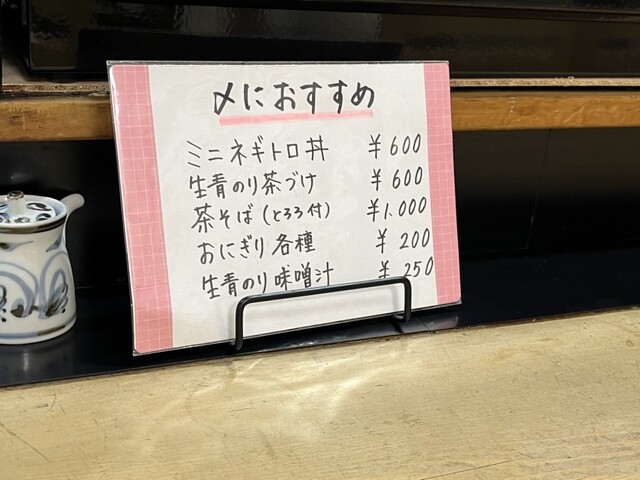 〆におすすめ
ミニネギトロ丼 ¥600
生青のり茶づけ ¥600
茶そば(とろろ付) ¥1,000
おにぎり各種 ¥200
生青のり味噌汁 ¥250